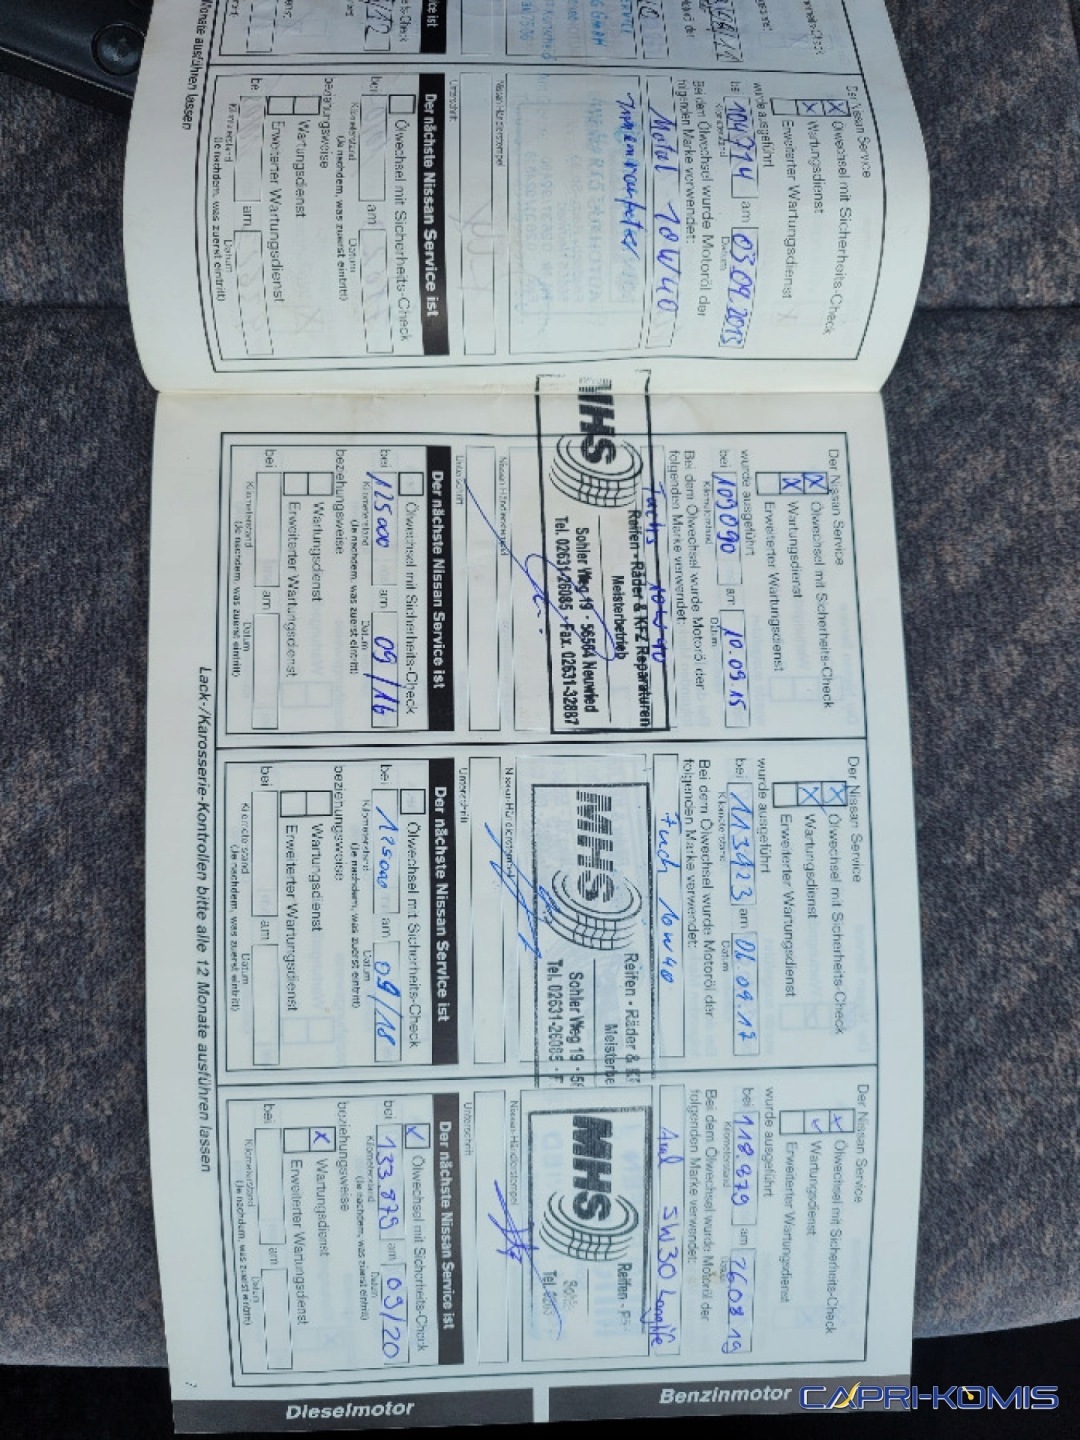 Der Nissan Service
Ölwechsel mit Sicherheits-Check
Wartungsdienst
Erweiterter Wartungsdienst
wurde ausgeführt
bei 104714 am 03.09.2013
Kilometerstand Datum
Bei dem Ölwechsel wurde Motoröl der
folgenden Marke verwendet:
Motul 10W40
Nissan-Händlerstempel
Unterschrift
Der nächste Nissan Service ist
Ölwechsel mit Sicherheits-Check
bei am
Kilometerstand Datum
(Je nachdem, was zuerst eintritt)
beziehungsweise
Wartungsdienst
Erweiterter Wartungsdienst
bei am
Kilometerstand Datum
(Je nachdem, was zuerst eintritt)
Monate ausführen lassen
Der Nissan Service
Ölwechsel mit Sicherheits-Check
Wartungsdienst
Erweiterter Wartungsdienst
wurde ausgeführt
bei 109090 am 10.09.15
Kilometerstand Datum
Bei dem Ölwechsel wurde Motoröl der
folgenden Marke verwendet:
Fuchs 10W40
MHS
Reifen - Räder & KFZ Reparaturen
Meisterbetrieb
Sohler Weg 19 · 56564 Neuwied
Tel. 02631-26085 · Fax. 02631-32887
Nissan-Händlerstempel
Unterschrift
Der nächste Nissan Service ist
Ölwechsel mit Sicherheits-Check
bei 125000 am 09/16
Kilometerstand Datum
(Je nachdem, was zuerst eintritt)
beziehungsweise
Wartungsdienst
Erweiterter Wartungsdienst
bei am
Kilometerstand Datum
(Je nachdem, was zuerst eintritt)
Der Nissan Service
Ölwechsel mit Sicherheits-Check
Wartungsdienst
Erweiterter Wartungsdienst
wurde ausgeführt
bei 113423 am 06.09.17
Kilometerstand Datum
Bei dem Ölwechsel wurde Motoröl der
folgenden Marke verwendet:
Fuch 10W40
MHS
Reifen - Räder &
Meisterbe
Sohler Weg 19 ·
Tel. 02631-26085 ·
Nissan-Händlerstempel
Unterschrift
Der nächste Nissan Service ist
Ölwechsel mit Sicherheits-Check
bei 125000 am 09/18
Kilometerstand Datum
(Je nachdem, was zuerst eintritt)
beziehungsweise
Wartungsdienst
Erweiterter Wartungsdienst
bei am
Kilometerstand Datum
(Je nachdem, was zuerst eintritt)
Der Nissan Service
Ölwechsel mit Sicherheits-Check
Wartungsdienst
Erweiterter Wartungsdienst
wurde ausgeführt
bei 118.879 am 26.08.19
Kilometerstand Datum
Bei dem Ölwechsel wurde Motoröl der
folgenden Marke verwendet:
Aral 5W30 Longlife
MHS
Reifen -
Tel.
Nissan-Händlerstempel
Unterschrift
Der nächste Nissan Service ist
Ölwechsel mit Sicherheits-Check
bei 133.879 am 09/20
Kilometerstand Datum
(Je nachdem, was zuerst eintritt)
beziehungsweise
Wartungsdienst
Erweiterter Wartungsdienst
bei am
Kilometerstand Datum
(Je nachdem, was zuerst eintritt)
Lack-/Karosserie-Kontrollen bitte alle 12 Monate ausführen lassen
Benzinmotor
Dieselmotor
CAPRI-KOMIS